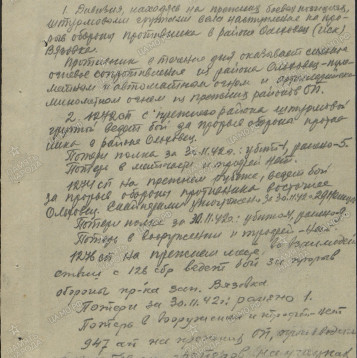 1. Дивизия, находясь на прежних боевых позициях,
штурмовыми группами вела наступление на про-
рыв обороны противника в районе Олховец (иск)
Вязовка
Противник в течение дня оказывает сильное
огневое сопротивление из района Олховец
и автоматным огнем и артиллерийско-
минометным огнем из прежних районов ОП.
2. 1272 сп с прежнего района штурмовой
группой ведет бой за прорыв обороны против-
ника в районе Олховец.
Потери полка за 30.11.42г.: убито 1, ранено-5.
Потерь в матчасти и трофей нет.
1274 сп на прежнем рубеже, ведет бой
за прорыв обороны противника восточнее
Олховец. уничтожено за 30.11.42г.
Потери полка за 30.11.42г.: убито 1, ранено
Потерь в вооружении и трофей-нет.
1276 сп на прежнем месте. Во взаимодей
ствии с 126 сбр ведет бой за прорыв
обороны пр-ка зап. Вязовка
Потери за 30.11.42г.: ранено 1.
Потерь в вооружении и трофей-нет
947 ап на прежних ОП,